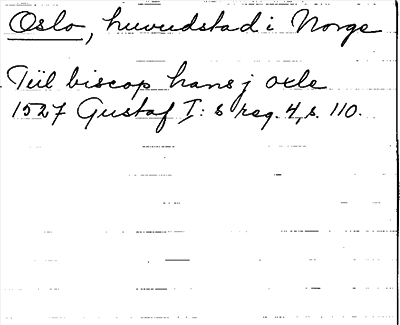 Oslo, huvudstad i Norge
Tiil biscop hans j oslo
1527 Gustaf I:s reg. 4, s. 110.